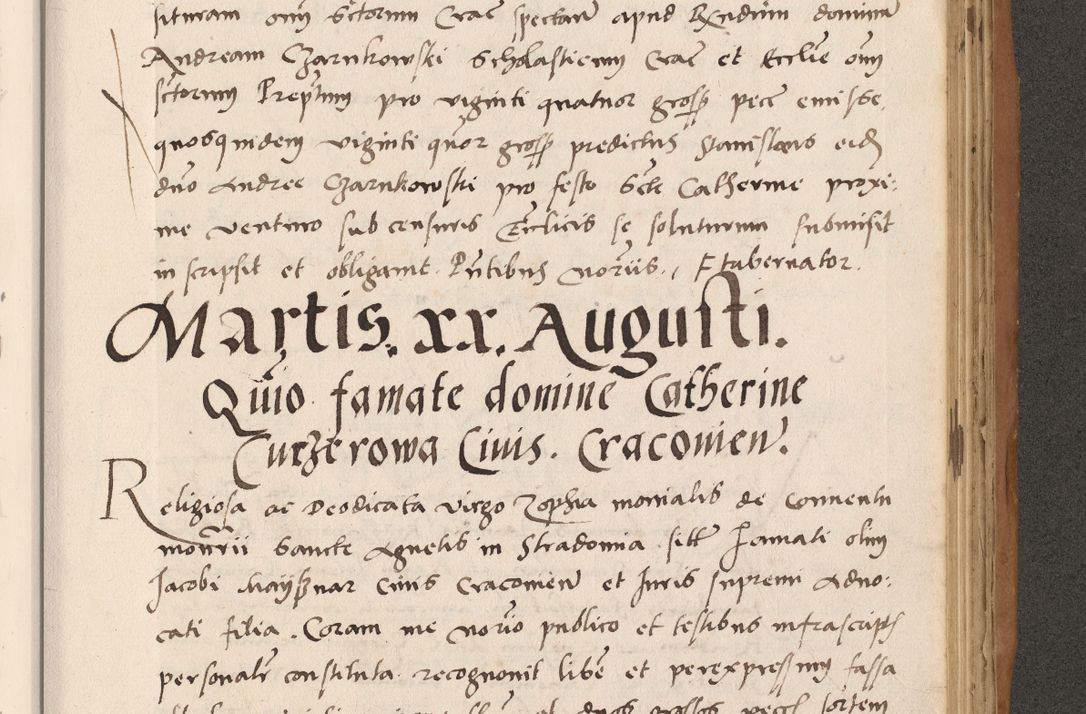 situram omnium Sctorum Crac spectan apud Rxndum dominum
Andream Czarnkowski Scholasticum Crac et Ecclie omnium
sctorum Prepitum pro viginti quatuor gross pecc emisse
quosquidem viginti quor gross predictus Stanislaus eid
dno Andree Czarnkowski pro festo Scte Catherine proxi:
me venturo sub censuris Ecclicis se soluturum submisit
inscripsit et obligavit. Pntibus noriis., F Tabernator.
Martis. xx. Augusti.
Quio famate domine Catherine
Curzerowa Civis. Cracovien.
Religiosa ac Deodicata virgo Zophia monialis de Conventu
monrii Sancte Agnetis in Stradomia sitt Famati olim
Jacobi Mayssnar Civis Cracovien et Juris supremi Advo:
cati filia. Coram me norio publico et testibus infrascripts
personalr constituta recognovit libe et perexpressum fassa